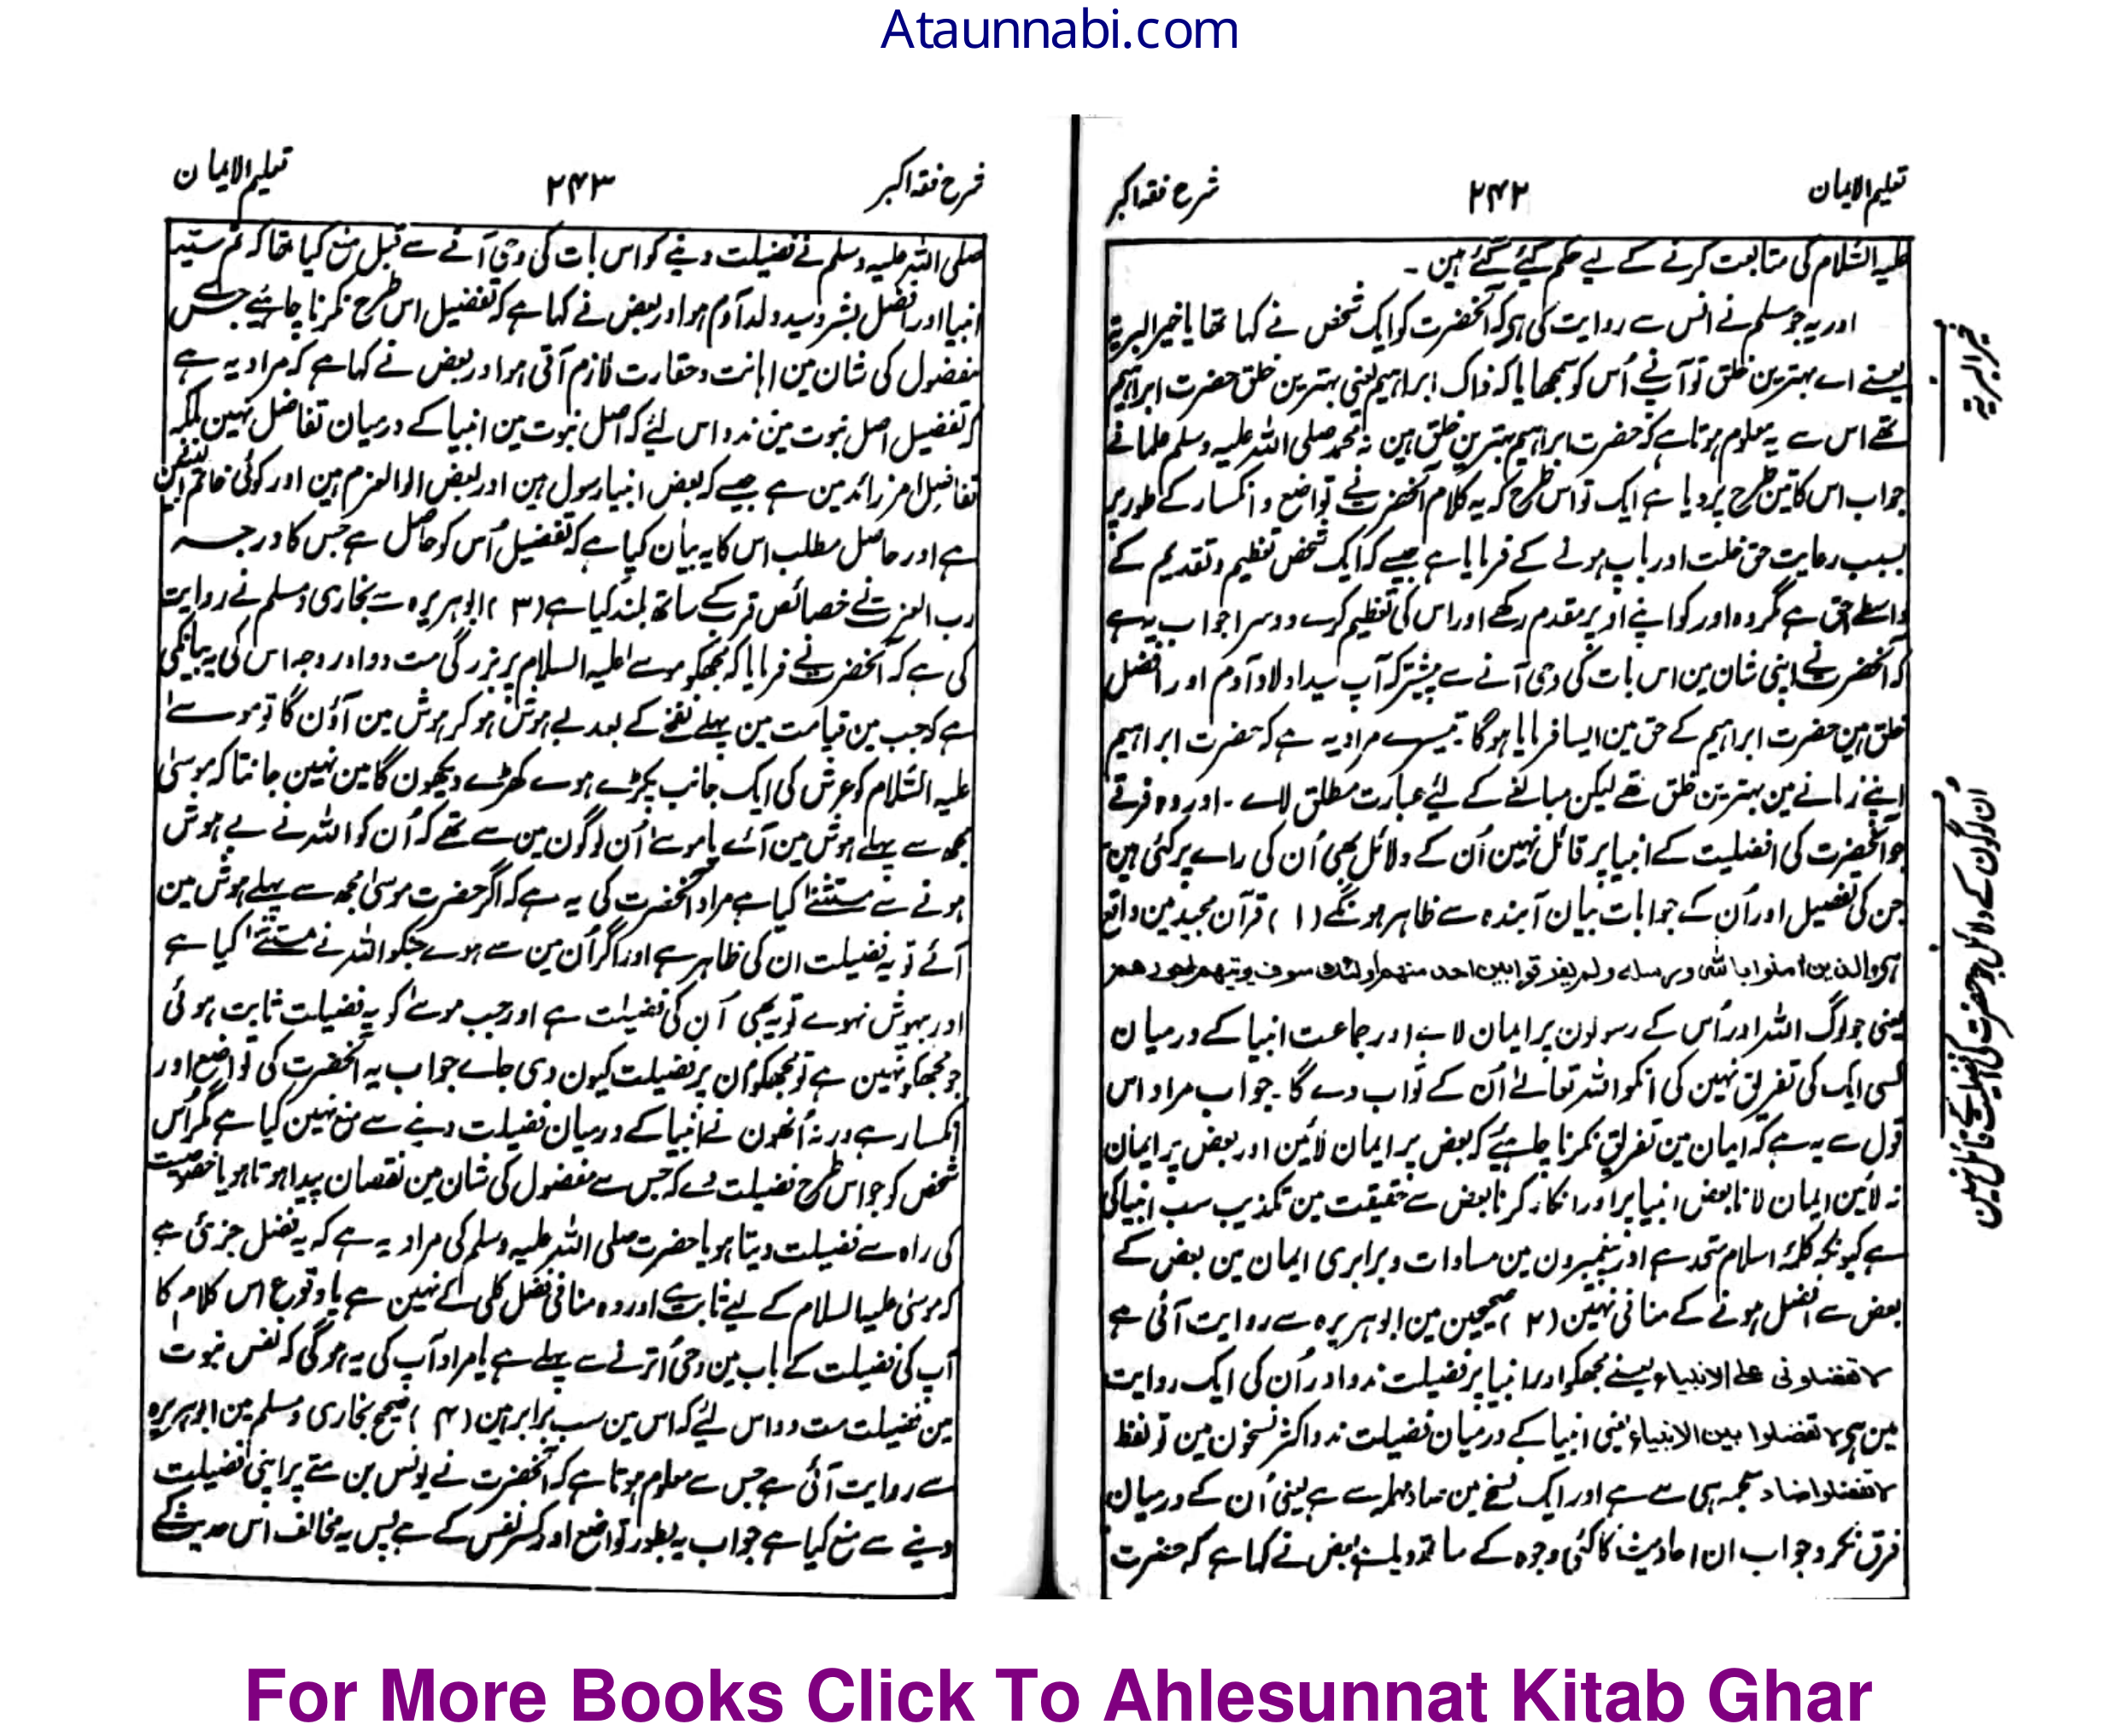 Ataunnabi.com
تعلیم الایمان
۲۴۲
شرح فقہ اکبر
علیہ السلام کی متابعت کرنے کے لیے حکم کیئے گئے ہین ۔
اور یہ جو مسلم نے انس سے روایت کی ہی کہ آنحضرت کو ایک شخص نے کہا تھا یا خیر البریۃ
یعنے اے بہترین خلق تو آپ نے اُس کو سمجھایا کہ ذاک ابراہیم یعنی بہترین خلق حضرت ابراہیم
تھے اس سے یہ معلوم ہوتا ہے کہ حضرت ابراہیم بہترین خلق ہین نہ محمد صلی اللہ علیہ وسلم علما نے
جواب اس کا تین طرح پر دیا ہے ایک تو اس طرح کہ یہ کلام آنحضرت نے تواضع و انکسار کے طور پر
بسبب رعایت حق خلت اور باپ ہونے کے فرمایا ہے جیسے کہ ایک شخص تعظیم و تقدیم کے
واسطے حق ہے مگر وہ اور کو اپنے اوپر مقدم رکھے اور اس کی تعظیم کرے دوسرا جواب یہ ہے
کہ آنحضرت نے اپنی شان مین اس بات کی وحی آنے سے پیشتر کہ آپ سید اولاد آدم اور افضل
خلق ہین حضرت ابراہیم کے حق مین ایسا فرمایا ہوگا تیسرے مراد یہ ہے کہ حضرت ابراہیم
اپنے زمانے مین بہترین خلق تھے لیکن مبالغے کے لیئے عبارت مطلق لاے ۔ اور وہ فرقے
جو آنحضرت کی افضلیت کے انبیا پر قائل نہین اُن کے دلائل بھی اُن کی راے پر کئی ہین
جن کی تفصیل اور اُن کے جوابات بیان آیندہ سے ظاہر ہونگے (۱) قرآن مجید مین واقع
ہی والذین امنوا باللہ ورسلہ ولم یفرقوا بین احد منھم اولئک سوف یوتیھم اجورھم
یعنی جو لوگ اللہ اور اُس کے رسولون پر ایمان لاے اور جماعت انبیا کے درمیان
کسی ایک کی تفریق نہین کی انکو اللہ تعالےٰ اُن کے ثواب دے گا ۔ جواب مراد اس
قول سے یہ ہے کہ ایمان مین تفریق نکرنا چاہیئے کہ بعض پر ایمان لائین اور بعض پر ایمان
نہ لائین ایمان لانا بعض انبیا پر اور انکار کرنا بعض سے حقیقت مین تکذیب سب انبیا کی
ہے کیونکہ کلمۂ اسلام متحد ہے اور پیغمبرون مین مساوات و برابری ایمان مین بعض کے
بعض سے افضل ہونے کے منافی نہین (۲) صحیحین مین ابوہریرہ سے روایت آئی ہے
لا تفضلونی علی الانبیاء یعنے مجھکو اور انبیا پر فضیلت ندو اور اُن کی ایک روایت
مین ہی لا تفضلوا بین الانبیاء یعنی انبیا کے درمیان فضیلت ندو اکثر نسخون مین تو لفظ
لا تفضلوا ضاد معجمہ ہی سے ہے اور ایک نسخے مین صاد مہملہ سے ہے یعنی اُن کے درمیان
فرق نکرو جواب ان احادیث کا کئی وجوہ کے ساتھ دیا ہے بعض نے کہا ہے کہ حضرت
خیر البریۃ
اُن لوگون کے دلائل جو حضرت کی افضلیت کے قائل نہین
شرح فقہ اکبر
۲۴۳
تعلیم الایمان
صلی اللہ علیہ وسلم نے فضیلت دینے کو اس بات کی وحی آنے سے قبل منع کیا تھا کہ تم سید
انبیا اور افضل بشر و سید ولد آدم ہو اور بعض نے کہا ہے کہ تفضیل اس طرح نکرنا چاہیئے جس سے
مفضول کی شان مین اہانت و حقارت لازم آتی ہو اور بعض نے کہا ہے کہ مراد یہ ہے
کہ تفضیل اصل نبوت مین ندو اس لیئے کہ اصل نبوت مین انبیا کے درمیان تفاضل نہین بلکہ
تفاضل امر زائد مین ہے جیسے کہ بعض انبیا رسول ہین اور بعض اولو العزم ہین اور کوئی خاتم النبیین
ہے اور حاصل مطلب اس کا یہ بیان کیا ہے کہ تفضیل اُس کو حاصل ہے جس کا درجہ
رب العزت نے خصائص قرب کے ساتھ بلند کیا ہے (۳) ابوہریرہ سے بخاری و مسلم نے روایت
کی ہے کہ آنحضرت نے فرمایا کہ مجھکو موسےٰ علیہ السلام پر بزرگی مت دو اور وجہ اس کی یہ بیان کی
ہے کہ جب مین قیامت مین پہلے نفخے کے بعد بے ہوش ہو کر ہوش مین آؤن گا تو موسےٰ
علیہ السلام کو عرش کی ایک جانب پکڑے ہوے کھڑے دیکھون گا مین نہین جانتا کہ موسیٰ
مجھ سے پہلے ہوش مین آئے یا موسےٰ اُن لوگون مین سے تھے کہ اُن کو اللہ نے بے ہوش
ہونے سے مستثنےٰ کیا ہے مراد آنحضرت کی یہ ہے کہ اگر حضرت موسیٰ مجھ سے پہلے ہوش مین
آئے تو یہ فضیلت ان کی ظاہر ہے اور اگر اُن مین سے ہوے جنکو اللہ نے مستثنےٰ کیا ہے
اور بیہوش نہوے تو یہ بھی اُن کی فضیلت ہے اور جب موسےٰ کو یہ فضیلت ثابت ہوئی
جو مجھکو نہین ہے تو مجھکو اُن پر فضیلت کیون دی جاے جواب یہ آنحضرت کی تواضع اور
انکسار ہے ورنہ اُنھون نے انبیا کے درمیان فضیلت دینے سے منع نہین کیا ہے مگر اُس
شخص کو جو اس طرح فضیلت دے کہ جس سے مفضول کی شان مین نقصان پیدا ہوتا ہو یا خصومت
کی راہ سے فضیلت دیتا ہو یا حضرت صلی اللہ علیہ وسلم کی مراد یہ ہے کہ یہ فضل جزئی ہے
کہ موسیٰ علیہ السلام کے لیے ثابت ہے اور وہ منافی فضل کلی کے نہین ہے یا وقوع اس کلام کا
آپ کی فضیلت کے باب مین وحی اُترنے سے پہلے ہے یا مراد آپ کی یہ ہوگی کہ نفس نبوت
مین فضیلت مت دو اس لیئے کہ اس مین سب برابر ہین (۴) صحیح بخاری و مسلم مین ابوہریرہ
سے روایت آئی ہے جس سے معلوم ہوتا ہے کہ آنحضرت نے یونس بن متے پر اپنی فضیلت
دینے سے منع کیا ہے جواب یہ بطور تواضع اور کسر نفس کے ہے پس یہ مخالف اُس حدیث کے
For More Books Click To Ahlesunnat Kitab Ghar